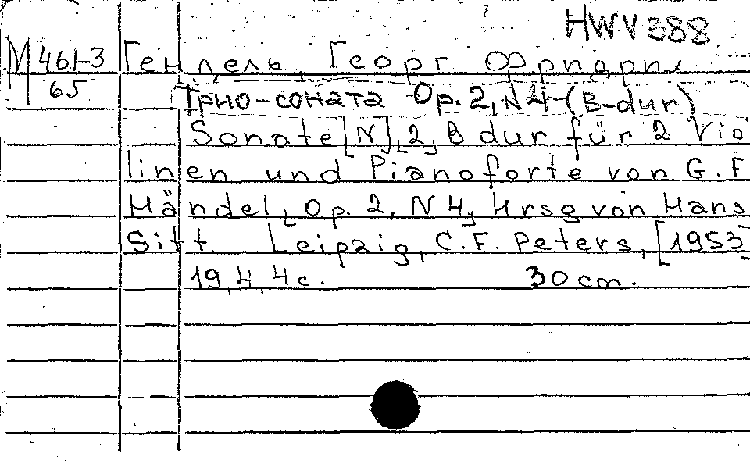 HWV 388
М 461-3 Гендель, Георг Фридрих
65
Трио-соната Op. 2, N 4 (B-dur)
Sonate [N] 2, B dur für 2 Vio
linen und Pianoforte von G. F
Händel, Op. 2, N 4, Hrsg von Hans
Sitt Leipzig, C. F. Peters, [1953]
19, 4, 4 c. 30 cm.